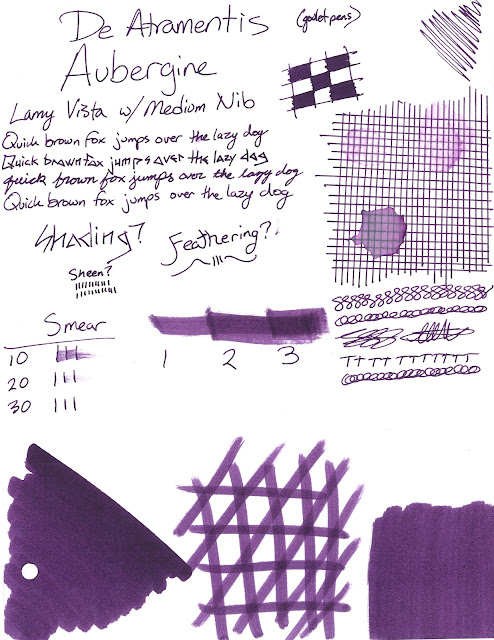 De Atramentis
(goulet pens)
Aubergine
Lamy Vista w/ Medium Nib
Quick brown fox jumps over the lazy dog
Quick brown fox jumps over the lazy dog
quick brown fox jumps over the lazy dog
Quick brown fox jumps over the lazy dog
Shading?
Feathering?
Sheen?
Smear
10
20
30
1 2 3